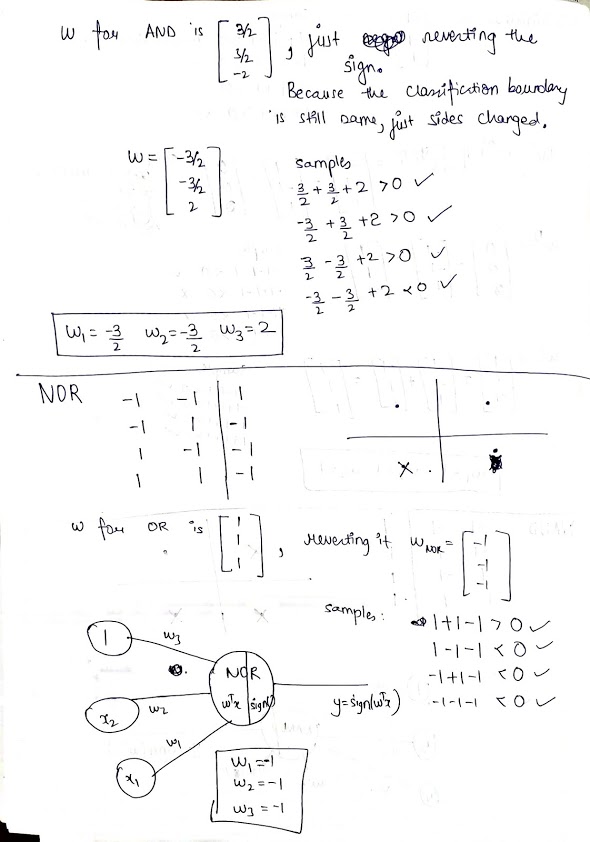 W for AND is [3/2 3/2 -2], just reverting the sign.
Because the classification boundary
is still same, just sides changed.
W = [-3/2 -3/2 2]
samples
3/2 + 3/2 + 2 > 0 ✓
-3/2 + 3/2 + 2 > 0 ✓
3/2 - 3/2 + 2 > 0 ✓
-3/2 - 3/2 + 2 < 0 ✓
W₁ = -3/2 W₂ = -3/2 W₃ = 2
NOR
-1 -1 | 1
-1 1 | -1
1 -1 | -1
1 1 | -1
W for OR is [1 1 1], reverting it W_NOR = [-1 -1 -1]
samples:
1+1-1 > 0 ✓
1-1-1 < 0 ✓
-1+1-1 < 0 ✓
-1-1-1 < 0 ✓
1
W₃
NOR
x₂
W₂
wᵀx | sign()
y = sign(wᵀx)
W₁
x₁
W₁ = -1
W₂ = -1
W₃ = -1